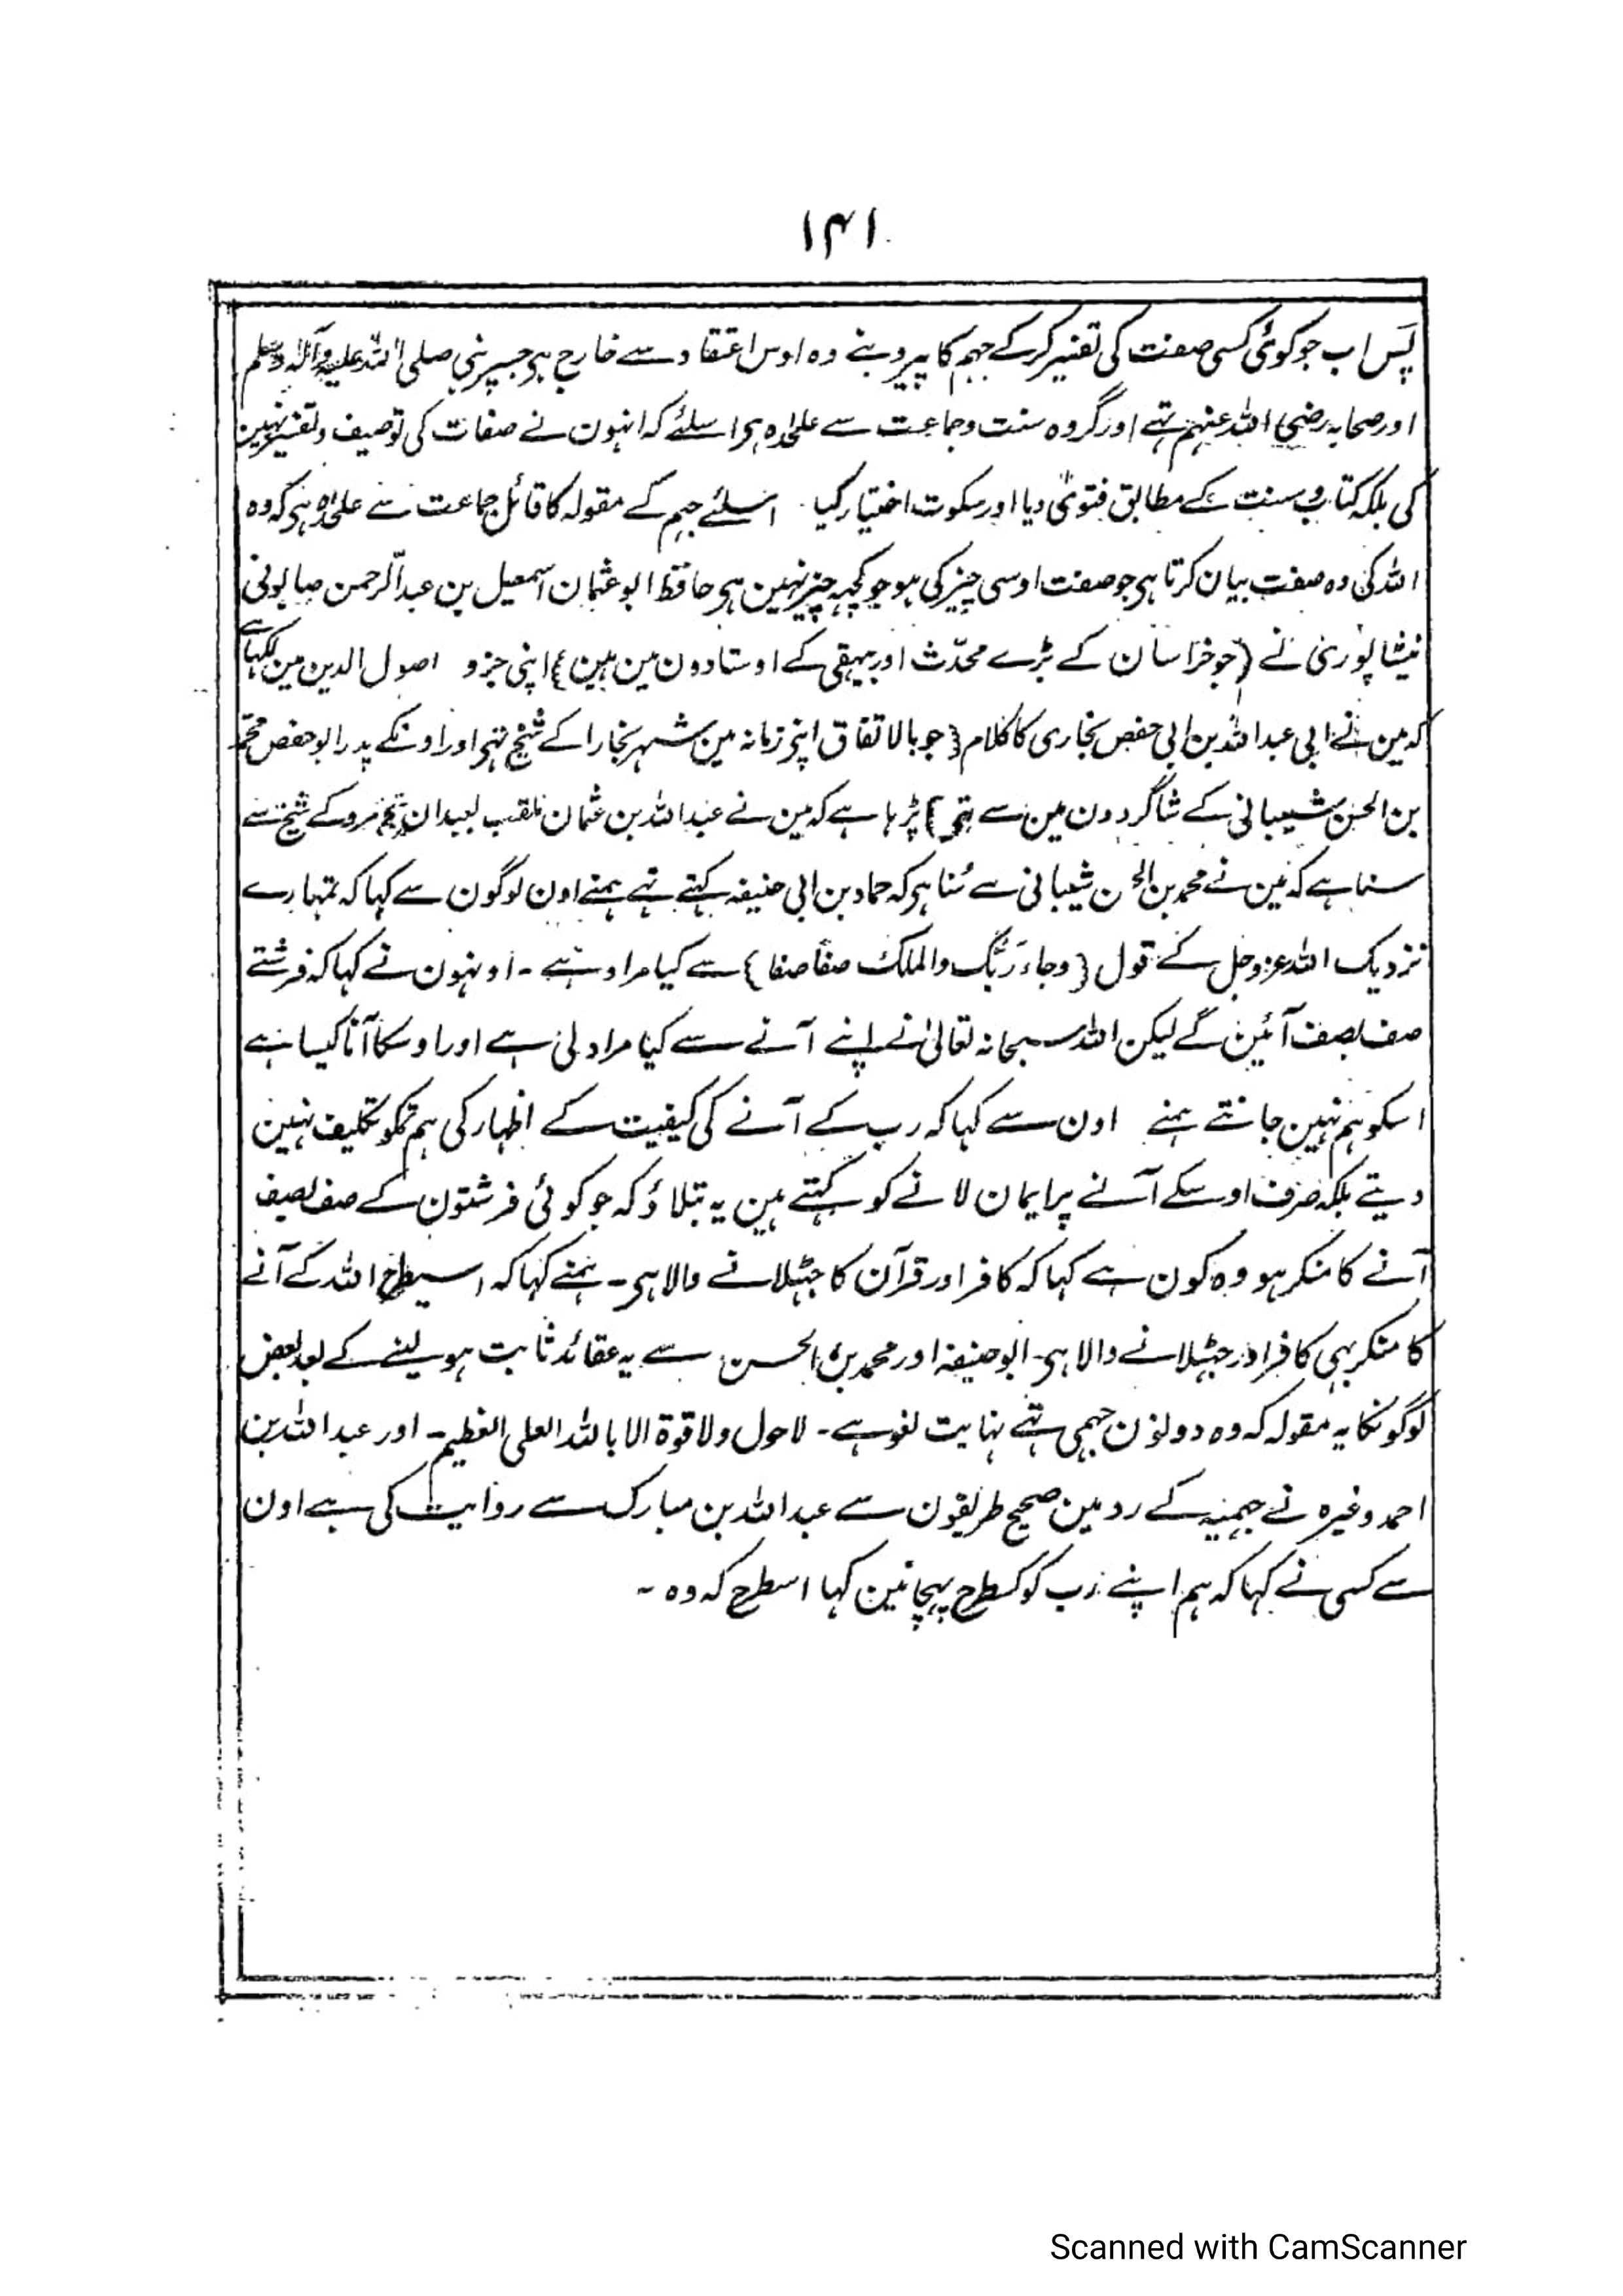 ۱۴۱
پس اب جو کوئی کسی صفت کی تفسیر کرکے جہم کا پیرو بنے وہ اوس اعتقاد سے خارج ہی جسپر نبی صلی اللہ علیہ وآلہ وسلم
اور صحابہ رضی اللہ عنہم تہے اور گروہ سنت وجماعت سے علحدہ ہی اسلئے کہ انہون نے صفات کی توصیف وتفسیر نہین
کی بلکہ کتاب وسنت کے مطابق فتویٰ دیا اور سکوت اختیار کیا اسلئے جہم کے مقولہ کا قائل جماعت سے علحدہ ہی کہ وہ
اللہ کی وہ صفت بیان کرتا ہی جو صفت اوسی چیز کی ہو جو کچہہ چیز نہین ہی حافظ ابو عثمان اسمعیل بن عبدالرحمن صابونی
نیشاپوری نے (جو خراسان کے بڑے محدّث اور بیہقی کے اوستادون مین ہین) اپنی جزو اصول الدین مین لکہا ہے
کہ مین نے ابی عبداللہ بن ابی حفص بخاری کا کلام (جو بالاتفاق اپنے زمانہ مین شہر بخارا کے شیخ تہے اور اونکے پدر ابوحفص محمد
بن الحسن شیبانی کے شاگردون مین سے تہی) پڑہا ہے کہ مین نے عبداللہ بن عثمان ملقب بعبدان شیخ مرو کے شیخ سے
سنا ہے کہ مین نے محمد بن الحسن شیبانی سے سُنا ہی کہ حماد بن ابی حنیفہ کہتے تہے ہمنے اون لوگون سے کہا کہ تمہارے
نزدیک اللہ عزوجل کے قول (وجاء رَبُّک والملک صفاً صفا) سے کیا مراد ہے - اونہون نے کہا کہ فرشتے
صف بصف آئین گے لیکن اللہ سبحانہ تعالیٰ نے اپنے آنے سے کیا مراد لی ہے اور اوسکا آنا کیسا ہے
اسکو ہم نہین جانتے ہمنے اون سے کہا کہ رب کے آنے کی کیفیت کے اظہار کی ہم تمکو تکلیف نہین
دیتے بلکہ صرف اوسکے آنے پر ایمان لانے کو کہتے ہین یہ بتلاؤ کہ جو کوئی فرشتون کے صف بصف
آنے کا منکر ہو وہ کون ہے کہا کہ کافر اور قرآن کا جہٹلانے والا ہی - ہمنے کہا کہ اسیطرح اللہ کے آنے
کا منکر بہی کافر اور جہٹلانے والا ہی - ابو حنیفہ اور محمد بن الحسن سے یہ عقائد ثابت ہو لینے کے بعد بعض
لوگونکا یہ مقولہ کہ وہ دونون جہمی تہے نہایت لغو ہے - لاحول ولا قوۃ الا باللہ العلی العظیم - اور عبداللہ بن
احمد وغیرہ نے جہمیہ کے رد مین صحیح طریقون سے عبداللہ بن مبارک سے روایت کی ہے اون
سے کسی نے کہا کہ ہم اپنے رب کو کسطرح پہچانین کہا اسطرح کہ وہ -
Scanned with CamScanner